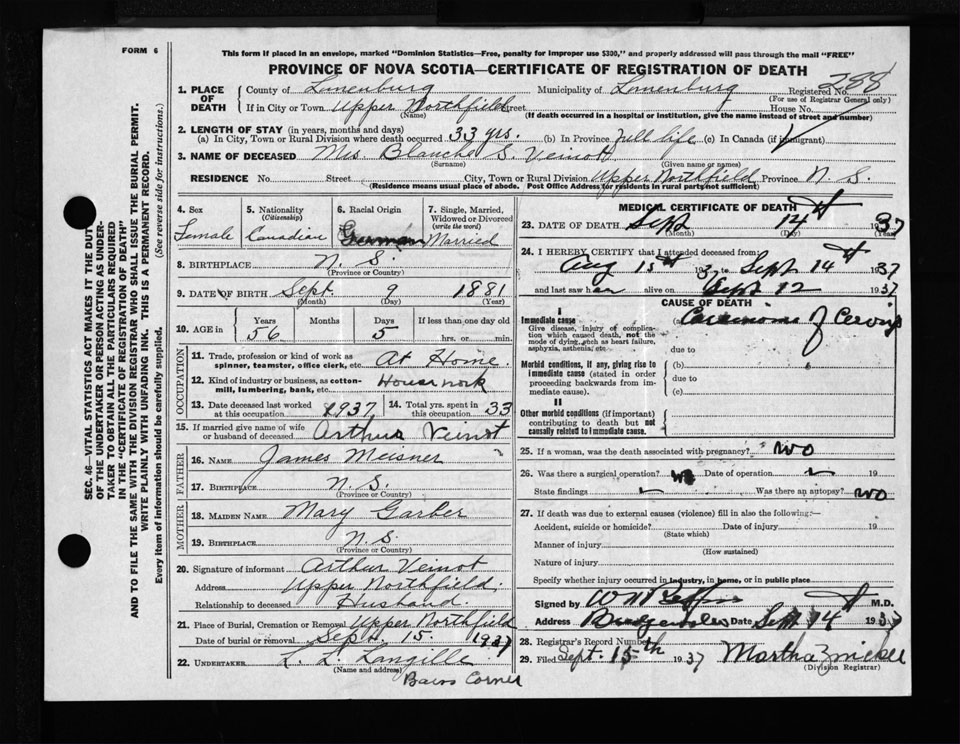 FORM 6
This form if placed in an envelope, marked "Dominion Statistics—Free, penalty for improper use $300," and properly addressed will pass through the mail "FREE"
PROVINCE OF NOVA SCOTIA—CERTIFICATE OF REGISTRATION OF DEATH
288
1. PLACE OF DEATH County of Lunenburg Municipality of Lunenburg Registered No.
(For use of Registrar General only)
If in City or Town Upper Northfield Street House No.
(Name) (If death occurred in a hospital or institution, give the name instead of street and number)
2. LENGTH OF STAY (in years, months and days)
(a) In City, Town or Rural Division where death occurred 33 yrs. (b) In Province full life (c) In Canada (if immigrant)
3. NAME OF DECEASED Mrs. Blanche S. Veinott
(Surname) (Given name or names)
RESIDENCE No. Street City, Town or Rural Division Upper Northfield Province N. S.
(Residence means usual place of abode. Post Office Address for residents in rural parts not sufficient)
4. Sex Female
5. Nationality (Citizenship) Canadian
6. Racial Origin German
7. Single, Married, Widowed or Divorced (write the word) Married
8. BIRTHPLACE N. S.
(Province or Country)
9. DATE OF BIRTH Sept. 9 1881
(Month) (Day) (Year)
10. AGE in Years Months Days If less than one day old
56 5 hrs. or min.
OCCUPATION
11. Trade, profession or kind of work as spinner, teamster, office clerk, etc. At Home.
12. Kind of industry or business, as cotton-mill, lumbering, bank, etc. House work
13. Date deceased last worked at this occupation 1937
14. Total yrs. spent in this occupation 33
15. If married give name of wife or husband of deceased Arthur Veinot
FATHER
16. NAME James Meisner
17. BIRTHPLACE N. S.
(Province or Country)
MOTHER
18. MAIDEN NAME Mary Garber
19. BIRTHPLACE N. S.
(Province or Country)
20. Signature of informant Arthur Veinot
Address Upper Northfield.
Relationship to deceased Husband
21. Place of Burial, Cremation or Removal Upper Northfield
Date of burial or removal Sept. 15 1937
22. UNDERTAKER L. L. Langille
(Name and address)
Corner
MEDICAL CERTIFICATE OF DEATH
23. DATE OF DEATH Sept 14th 1937
(Month) (Day) (Year)
24. I HEREBY CERTIFY that I attended deceased from
Aug 15th 1937 to Sept 14th 1937
and last saw her alive on Sept 12 1937
CAUSE OF DEATH
I
Immediate cause (a) Carcinoma of Cervix
Give disease, injury or complication which caused death, not the mode of dying, such as heart failure, asphyxia, asthenia, etc.
due to
Morbid conditions, if any, giving rise to immediate cause (stated in order proceeding backwards from immediate cause).
(b)
due to
(c)
II
Other morbid conditions (if important) contributing to death but not causally related to immediate cause.
25. If a woman, was the death associated with pregnancy? no
26. Was there a surgical operation? no Date of operation 19
State findings Was there an autopsy? no
27. If death was due to external causes (violence) fill in also the following:—
Accident, suicide or homicide? Date of injury 19
(State which)
Manner of injury
(How sustained)
Nature of injury
Specify whether injury occurred in industry, in home, or in public place
Signed by M.D.
Address Bridgewater Date Sept 14th 1937
28. Registrar's Record Number
29. Filed Sept. 15th 1937 Martha Zwicker
(Division Registrar)
SEC. 46—VITAL STATISTICS ACT MAKES IT THE DUTY
OF THE UNDERTAKER OR PERSON ACTING AS UNDER-
TAKER TO OBTAIN ALL THE PARTICULARS REQUIRED
IN THE "CERTIFICATE OF REGISTRATION OF DEATH"
AND TO FILE THE SAME WITH THE DIVISION REGISTRAR WHO SHALL ISSUE THE BURIAL PERMIT.
WRITE PLAINLY WITH UNFADING INK. THIS IS A PERMANENT RECORD.
Every item of information should be carefully supplied. (See reverse side for instructions.)